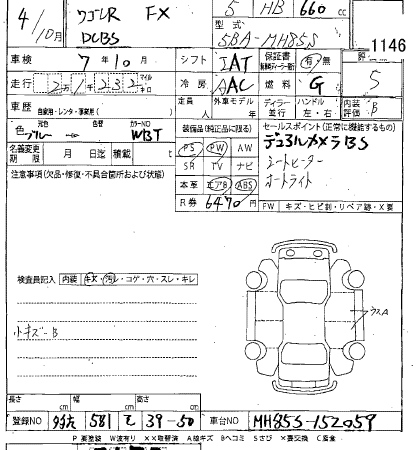 4/10月 ワゴンR FX DCBS 5 HB 660 cc
型式 5BA-MH85S
1146
車検 7年10月 シフト IAT 保証書 有・無
走行 2万1千232 マイル キロ 冷房 AAC 燃料 G 5
車歴 自家用・レンタ・事業用( ) 定員 人 外車モデル 年 ディーラー 並行 ハンドル 左・右 内装評価 B
色 元色 ブルー 色替 カラーNO WBT
装備品(純正品に限る) セールスポイント(正常に機能するもの)
名義変更期限 月 日迄 積載 t
PS PW AW デュアルカメラBS
SR TV ナビ シートヒーター
注意事項(欠品・修復・不具合箇所および状態)
本革 エアB ABS オートライト
R券 6470円
FW キズ・ヒビ割・リペア跡・X要
検査員記入 内装 キズ・汚レ・コゲ・穴・スレ・キレ
小キズ-B
ウスA
長さ cm 幅 cm 高さ cm
登録NO 581 て 39-50 車台NO MH85S-152059
P 要塗装 W波有り XX取替済 A線キズ Bヘコミ Sさび X要交換 C腐食